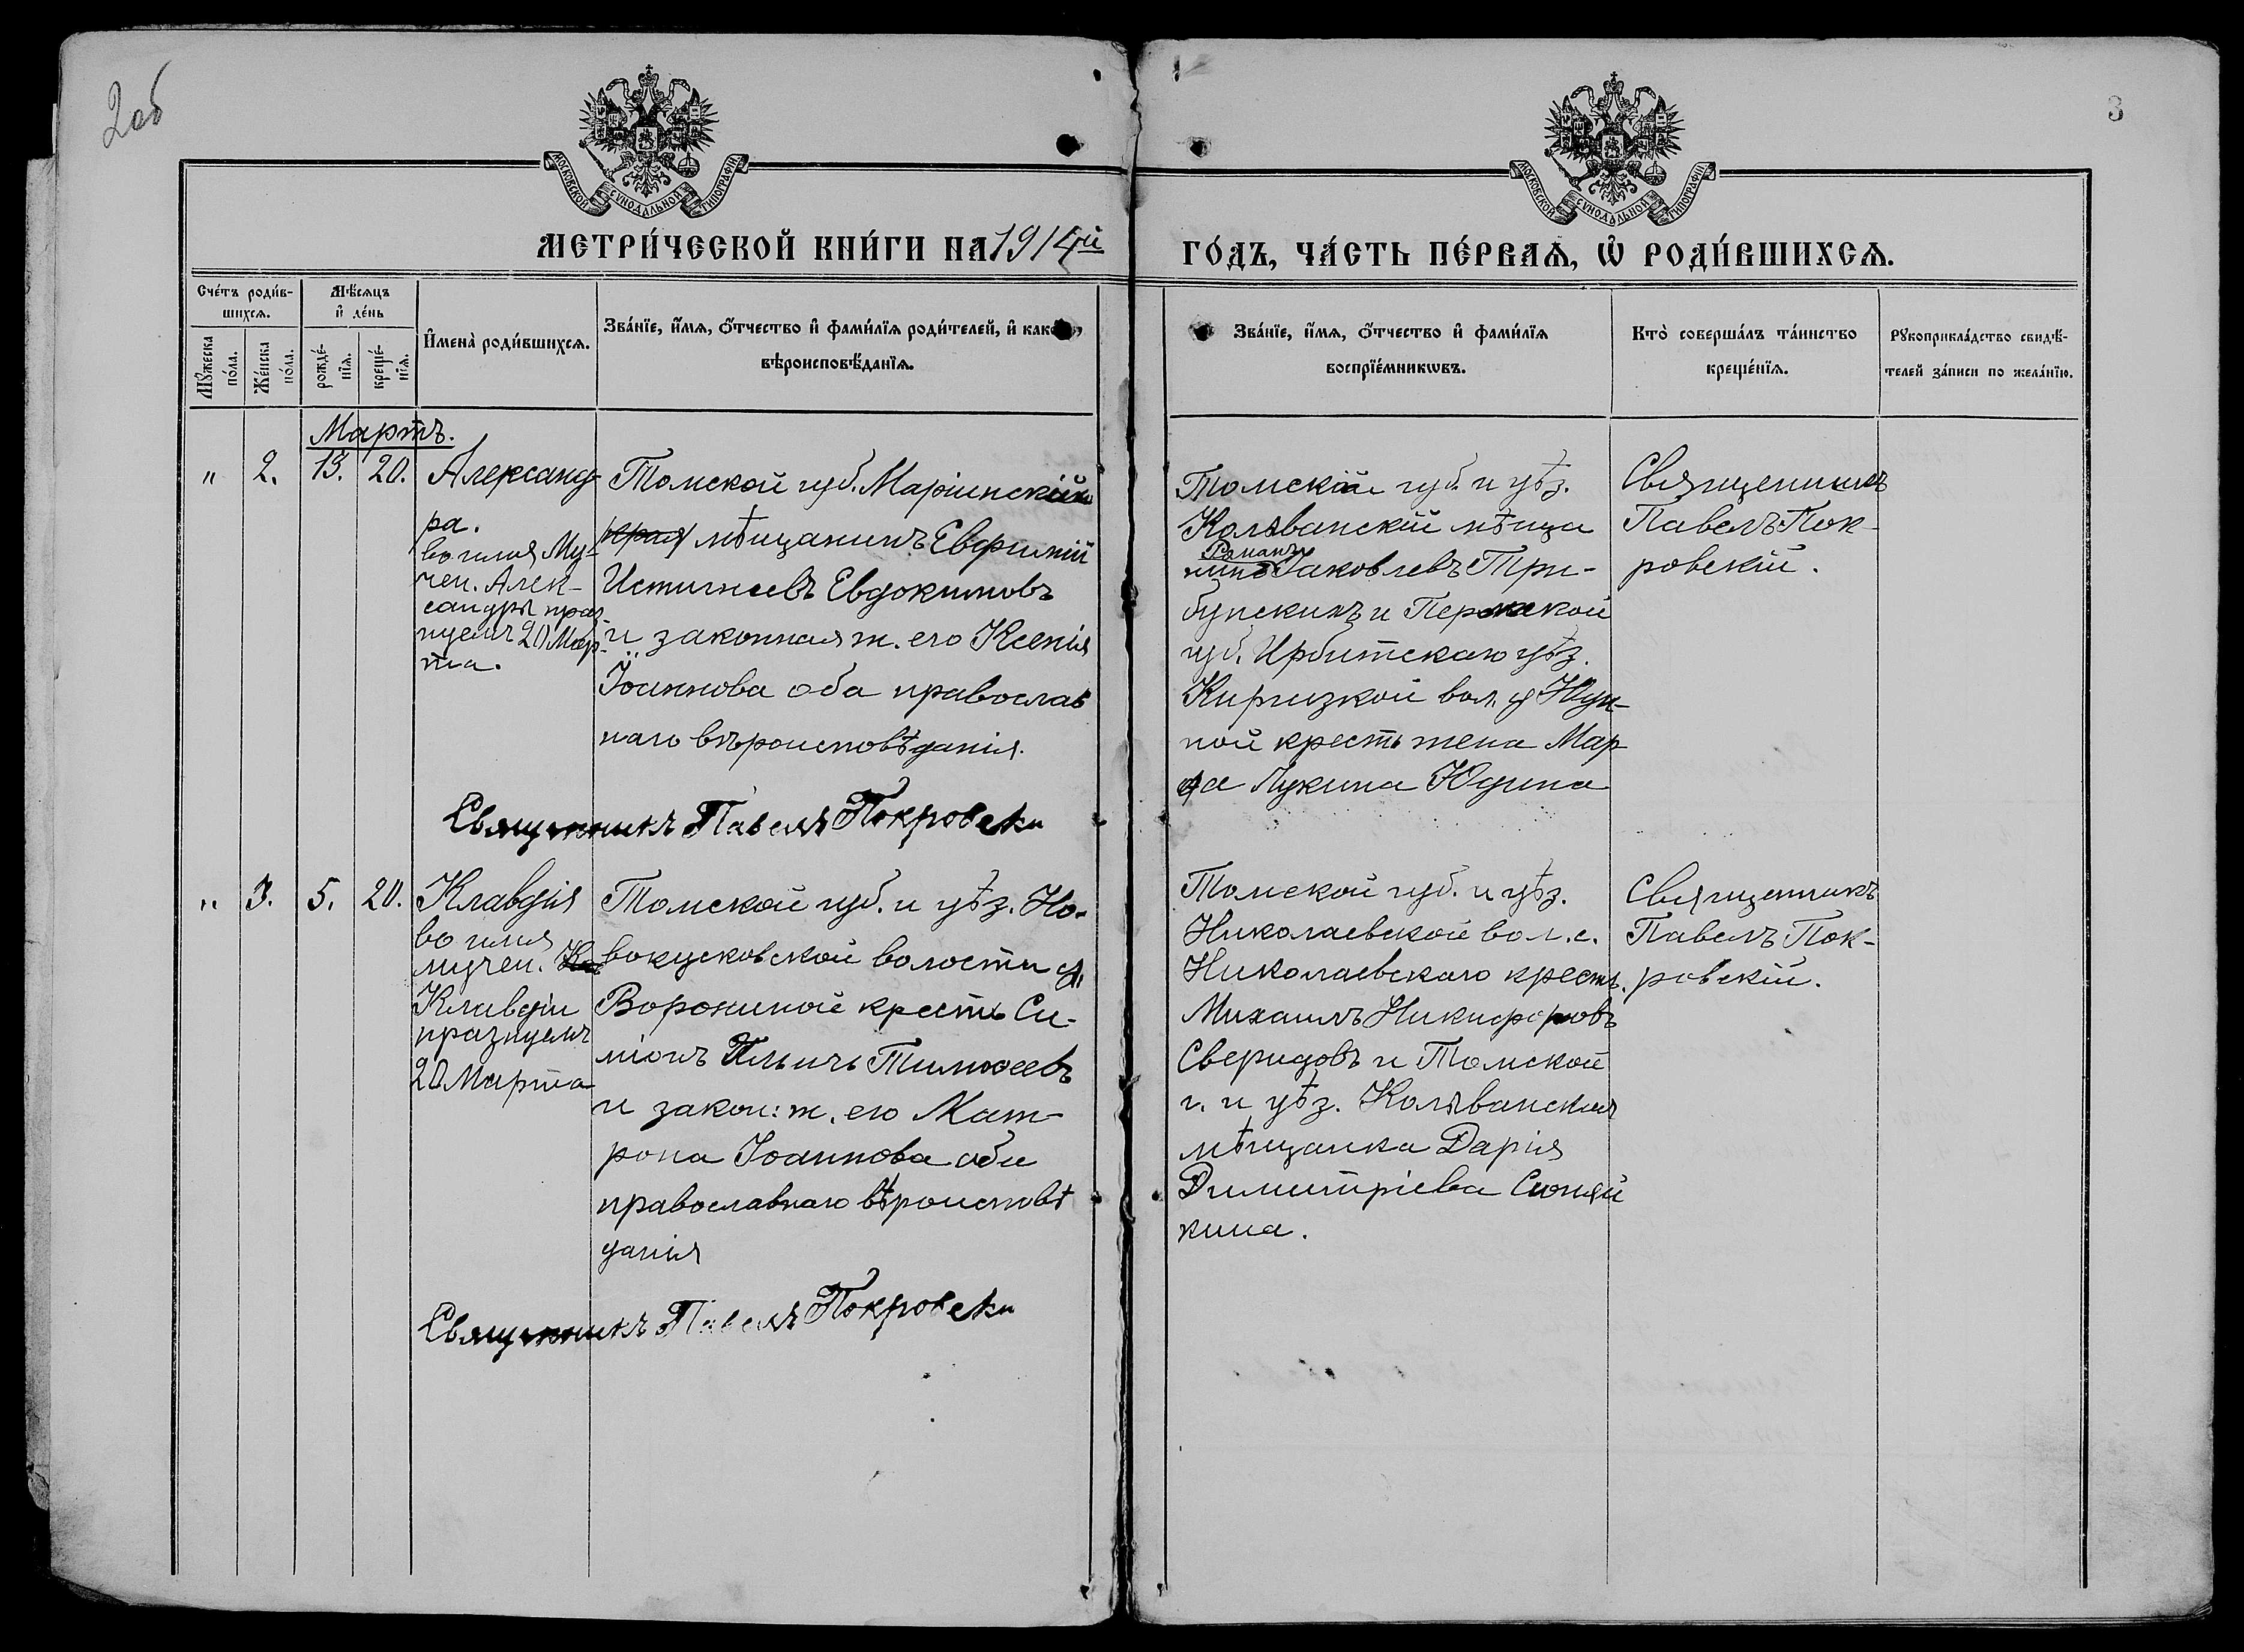 2об
3
МОСКОВСКОЙ СѴНОДАЛЬНОЙ ТИПОГРАФІИ
МОСКОВСКОЙ СѴНОДАЛЬНОЙ ТИПОГРАФІИ
МЕТРИ́ЧЕСКОЙ КНИ́ГИ НА 1914й
ГО́ДЪ, ЧА́СТЬ ПЕ́РВАѦ, Ѡ҆ РОДИ́ВШИХСѦ.
Сче́тъ роди́в-
шихсѧ.
Мѣ́сѧцъ
и҆ де́нь
Мꙋ́жеска
по́ла.
Же́нска
по́ла.
рожде́-
нїѧ.
креще́-
нїѧ.
И҆мена̀ роди́вшихсѧ.
Зва́нїе, и҆́мѧ, ѻ҆́тчество и҆ фами́лїѧ роди́телей, и҆
вѣроисповѣ́данїѧ.
Зва́нїе, и҆́мѧ, ѻ҆́тчество и҆ фами́лїѧ
воспрїе́мникѡвъ.
Кто̀ соверша́лъ та́инство
креще́нїѧ.
Рꙋкоприкла́дство свидѣ́-
телей за́писи по жела́нїю.
Мартъ.
" 2. 13. 20.
Александ-
ра.
во имя Му-
чен. Алек-
сандры праз-
нуем. 20 Мар-
та.
Томской губ. Маріинскій
края мѣщанинъ Евфимій
Истигнеевъ Евдокимовъ
и законная ж. его Ксенія
Іоаннова оба православ
наго вѣроисповѣданія.
Священникъ Павелъ Покровски
Томской губ. и уѣз.
Колыванскій мѣща
Романъ
нинъ Іаковлевъ Три-
бунскихъ и Пермской
губ. Ирбитскаго уѣз.
Киргизкой вол. д
ной кресть жена Мар
фа Лукина Юдина
Священникъ
Павелъ Пок-
ровскій.
" 3. 5. 20.
Клавдія
во имя
мучен.
Клавдіи
празнуем.
20 Марта
Томской губ. и уѣз. Но-
вокусковской волости д.
Ворониной кресть Си-
міонъ Ильичъ Тимоѳеевъ
и закон: ж. его Мат-
рона Іоаннова оба
православнаго вѣроисповѣ
данія
Священникъ Павелъ Покровски
Томской губ. и уѣз.
Николаевской вол. с.
Николаевскаго кресть.
Михаилъ Никифоровъ
Свиридовъ и Томской
г. и уѣз. Колыванская
мѣщанка Дарія
Димитріева
кина.
Священникъ
Павелъ Пок-
ровскій.